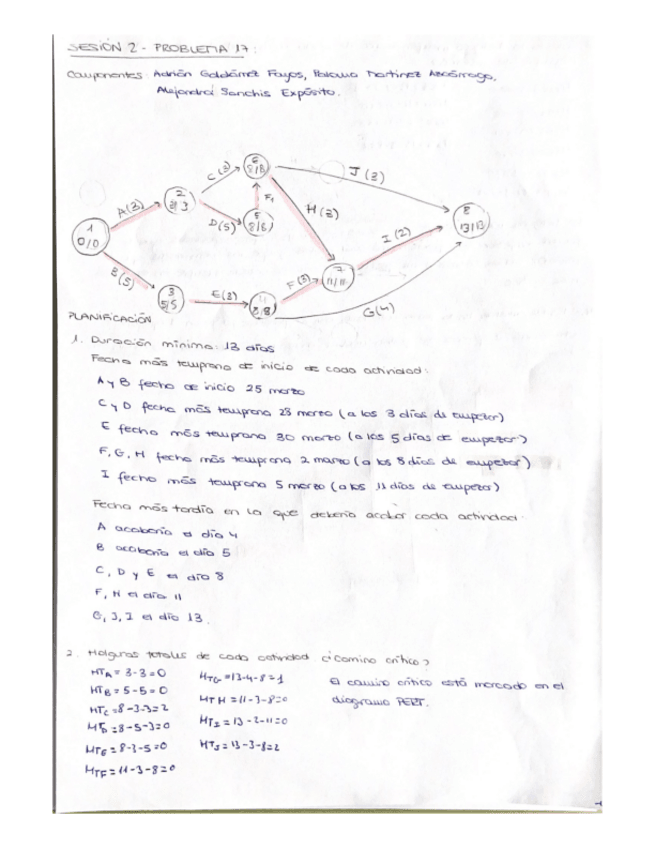 SESIÓN 2 - PROBLEMA 17:
Componentes: Adrián Galdámez Fayos, Paloma Martinez
Alejandra Sanchis Expósito.
C(3)
6
8/8
J(3)
A(3)
2
3/3
F1
H(3)
D(5)
5
8
13/13
1
0/0
I(2)
B(5)
F(3)
7
11/11
E(3)
3
5/5
8/8
G(4)
PLANIFICACIÓN
1. Duración mínima: 13 días
Fecha más temprana de inicio de cada actividad:
A y B fecha de inicio 25 marzo
C y D fecha más temprana 28 marzo (a los 3 días de empezar)
E fecha más temprana 30 marzo (a los 5 días de empezar)
F, G, H fecha más temprana 2 marzo (a los 8 días de empezar)
I fecha más temprana 5 marzo (a los 11 días de empezar)
Fecha más tardía en la que debería acabar cada actividad:
A acabaría el día 4
B acabaría el día 5
C, D y E el día 8
F, H el día 11
G, J, I el día 13.
2. Holguras totales de cada actividad ¿Camino crítico?
HTA = 3-3=0
HTG = 13-4-8=1
El camino crítico está marcado en el
HTB = 5-5=0
HTH = 11-3-8=0
diagrama PERT.
HTC = 8-3-3=2
HTI = 13-2-11=0
HTD = 8-5-3=0
HTJ = 13-3-8=2
HTE = 8-3-5=0
HTF = 11-3-8=0